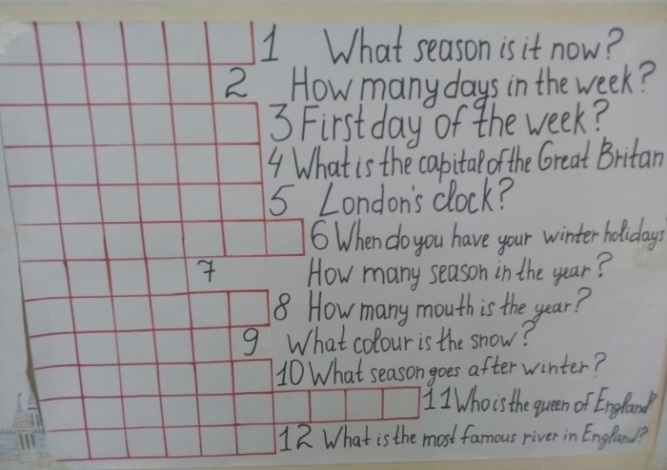 1 What season is it now?
2 How many days in the week?
3 First day of the week?
4 What is the capital of the Great Britan
5 London's clock?
6 When do you have your winter holidays
7 How many season in the year?
8 How many mouth is the year?
9 What colour is the snow?
10 What season goes after winter?
11 Who is the queen of England?
12 What is the most famous river in England?